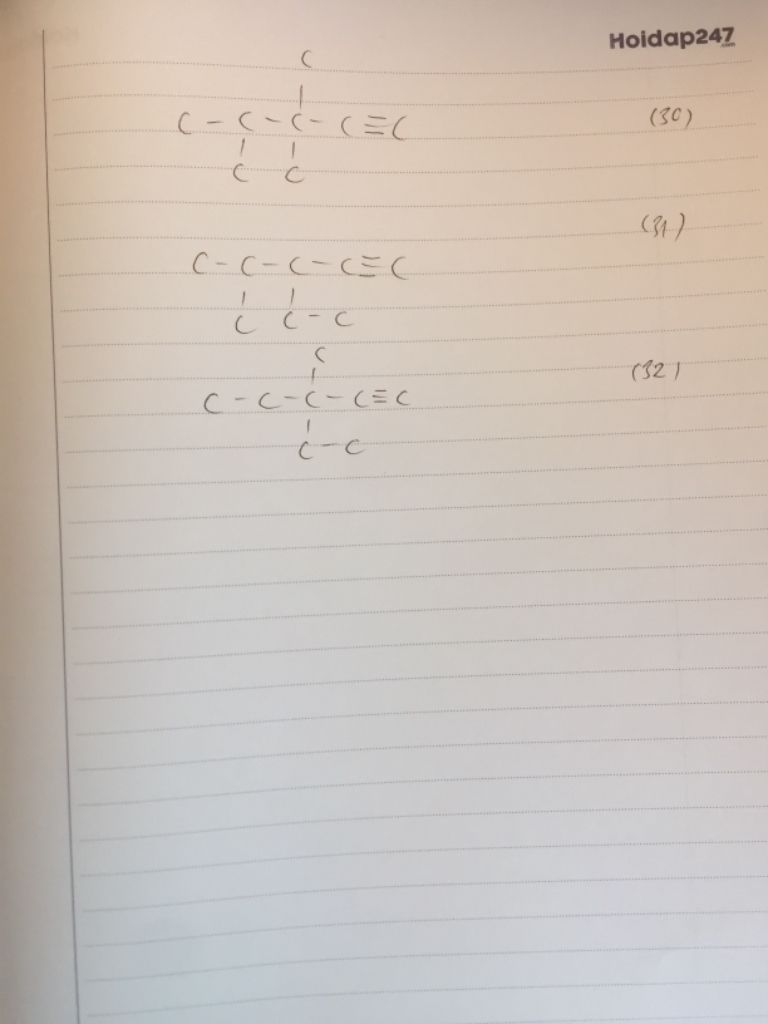 Hoidap247
.com
C
|
C - C - C - C ≡ C (30)
| |
C C
(31)
C - C - C - C ≡ C
| |
C C - C
C
|
(32)
C - C - C - C ≡ C
|
C - C